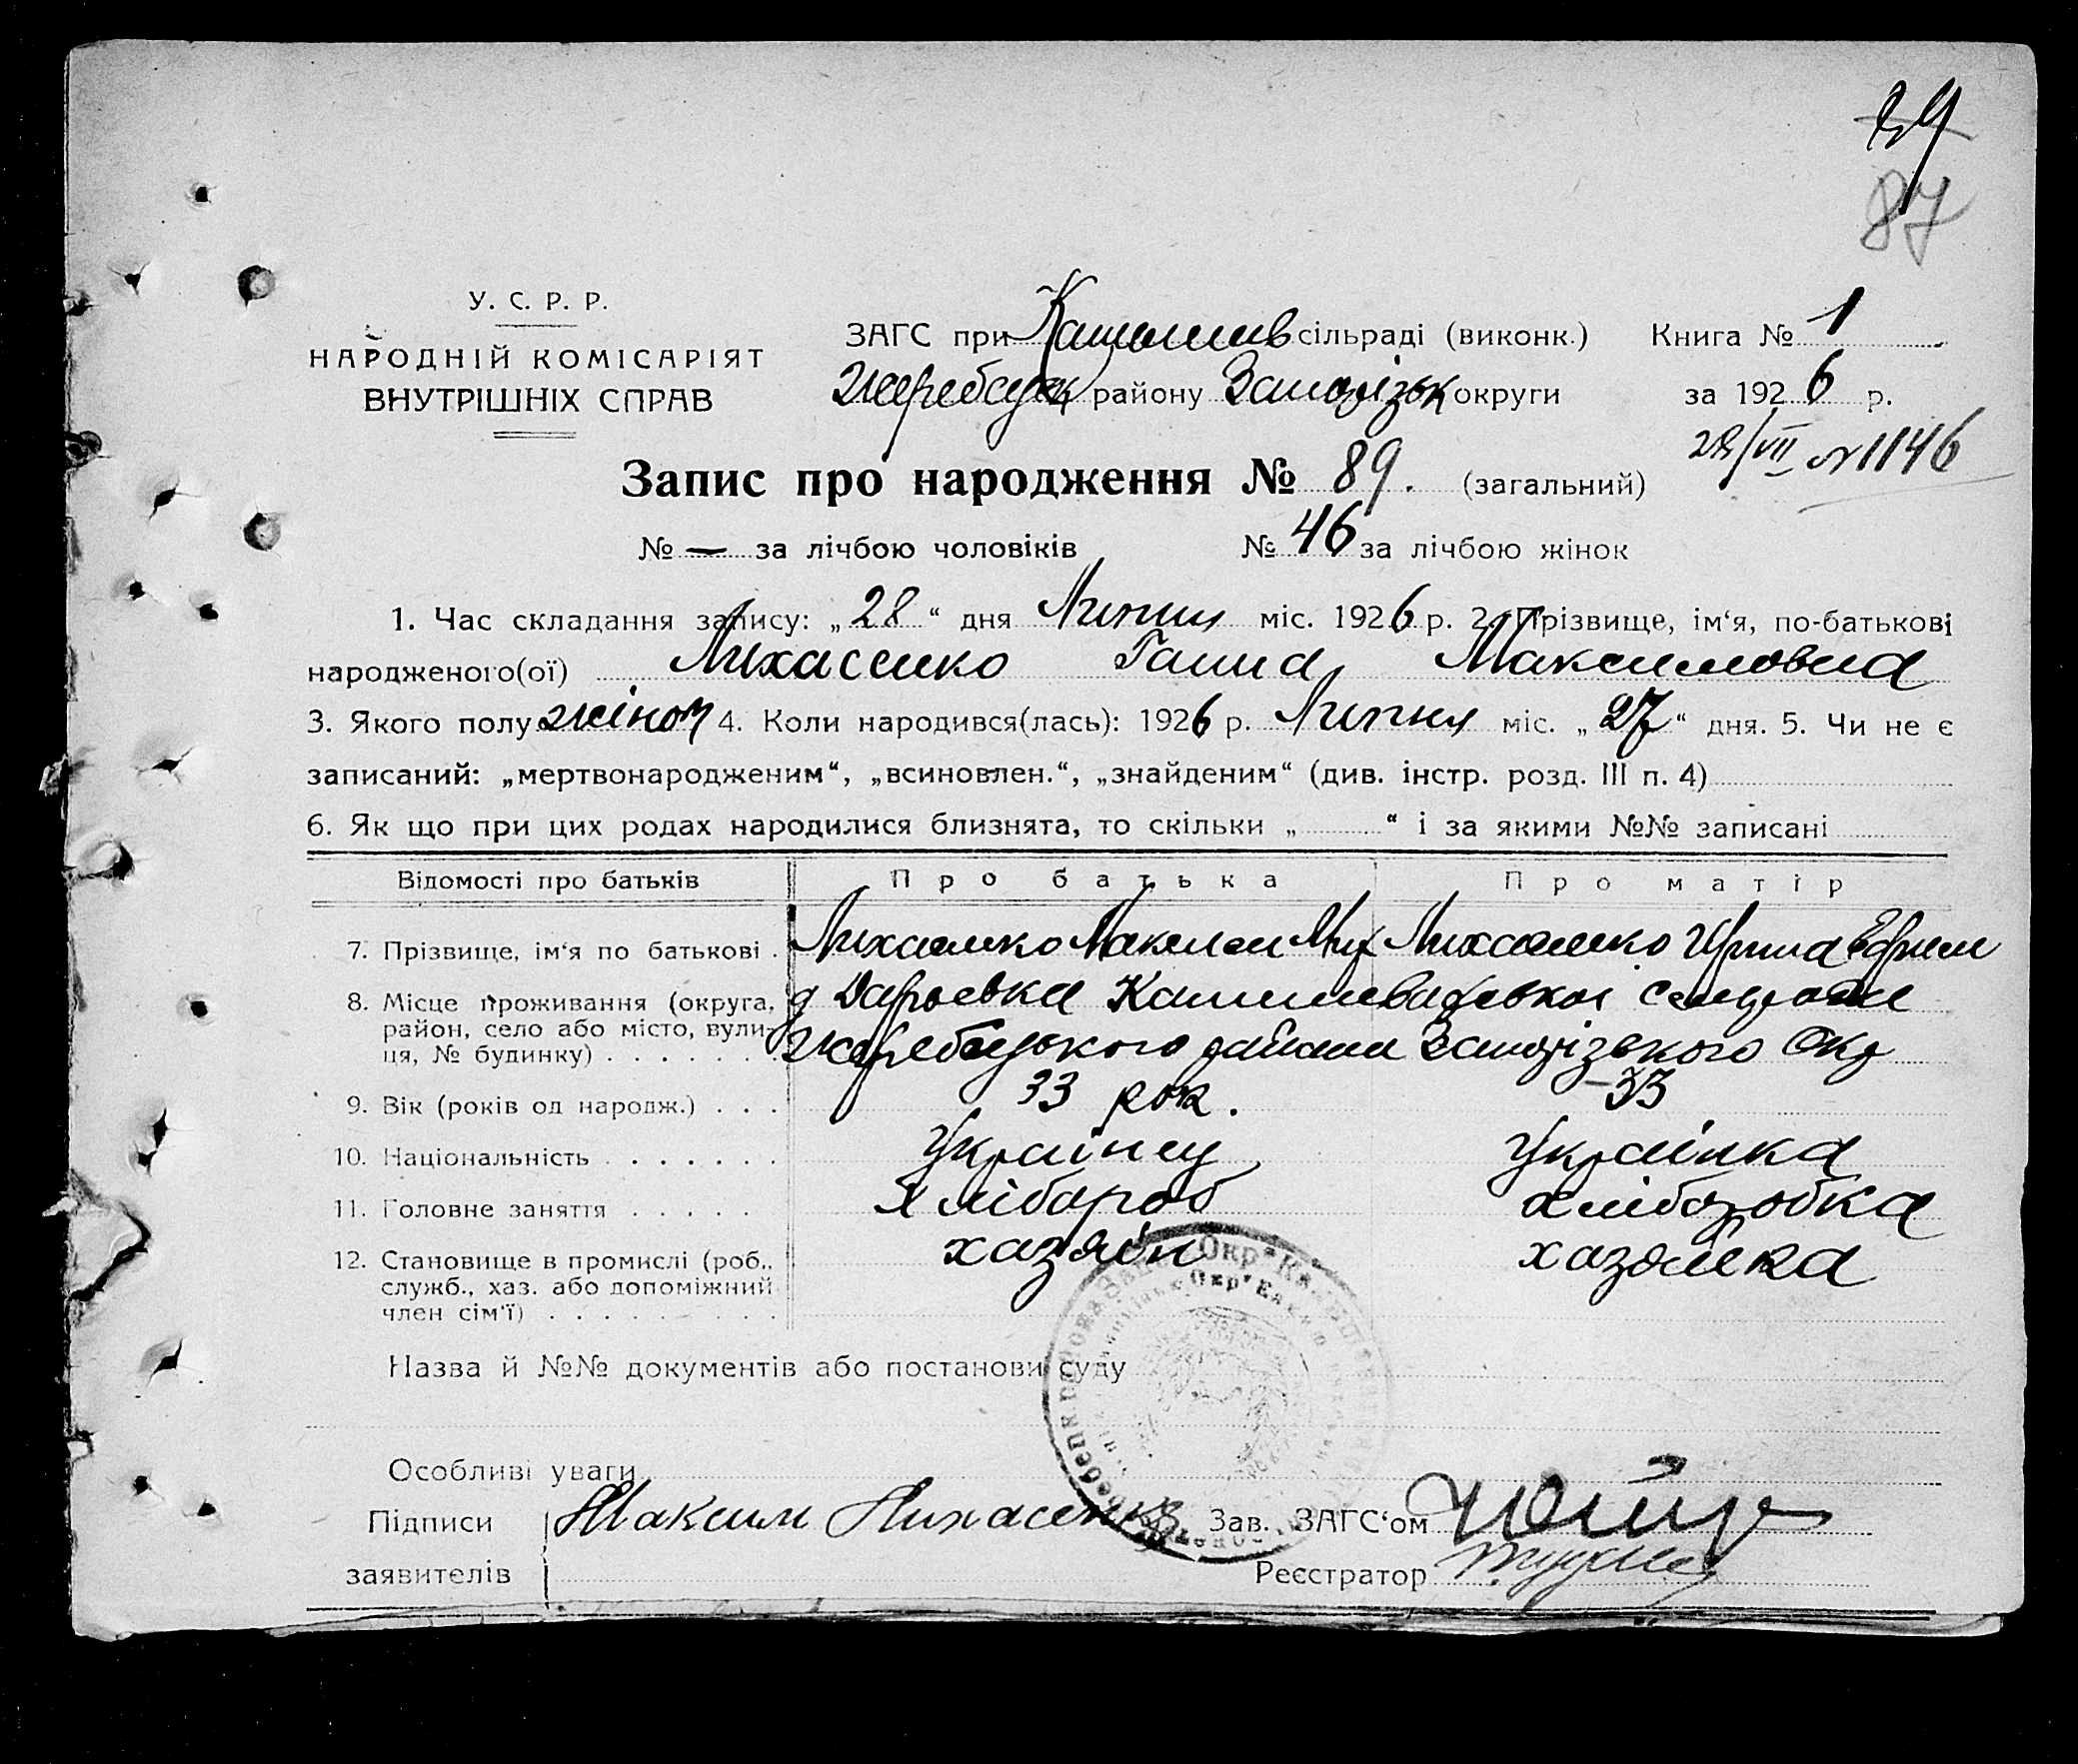 87
У. С. Р. Р.
НАРОДНІЙ КОМІСАРІЯТ
ВНУТРІШНІХ СПРАВ
ЗАГС при сільраді (виконк.) Книга № 1
Жеребецьк району Запорізьк округи за 1926 р.
28/VII №1146
Запис про народження № 89. (загальний)
№ — за лічбою чоловіків № 46 за лічбою жінок
1. Час складання запису: „28“ дня Липня міс. 1926 р. 2. Прізвище, ім‘я, по-батькові
народженого(ої) Лихасенко Ганна Максимовна
3. Якого полу жіноч 4. Коли народився(лась): 1926 р. Липня міс. „27“ дня. 5. Чи не є
записаний: „мертвонародженим“, „всиновлен.“, „знайденим“ (див. інстр. розд. III п. 4)
6. Як що при цих родах народилися близнята, то скільки „ “ і за якими №№ записані
Відомості про батьків Про батька Про матір
7. Прізвище, ім‘я по батькові . Лихасенко Максим Мих Лихасенко Ирина Ефрем
8. Місце проживання (округа, д Дарьевка
район, село або місто, вули-
ця, № будинку) . . . . . . Жеребецького района Запорізького Окр
9. Вік (років од народж.) . . . 33 рок. 33
10. Національність . . . . . . . Українец Українка
11. Головне заняття . . . . . Хлібороб хліборобка
12. Становище в промислі (роб., хазяїн хазяйка
служб., хаз. або допоміжний
член сім‘ї) . . . . . . . . .
Назва й №№ документів або постанови суду
Особливі уваги
Підписи Максим Лихасенко Зав. ЗАГС‘ом
заявителів Реєстратор